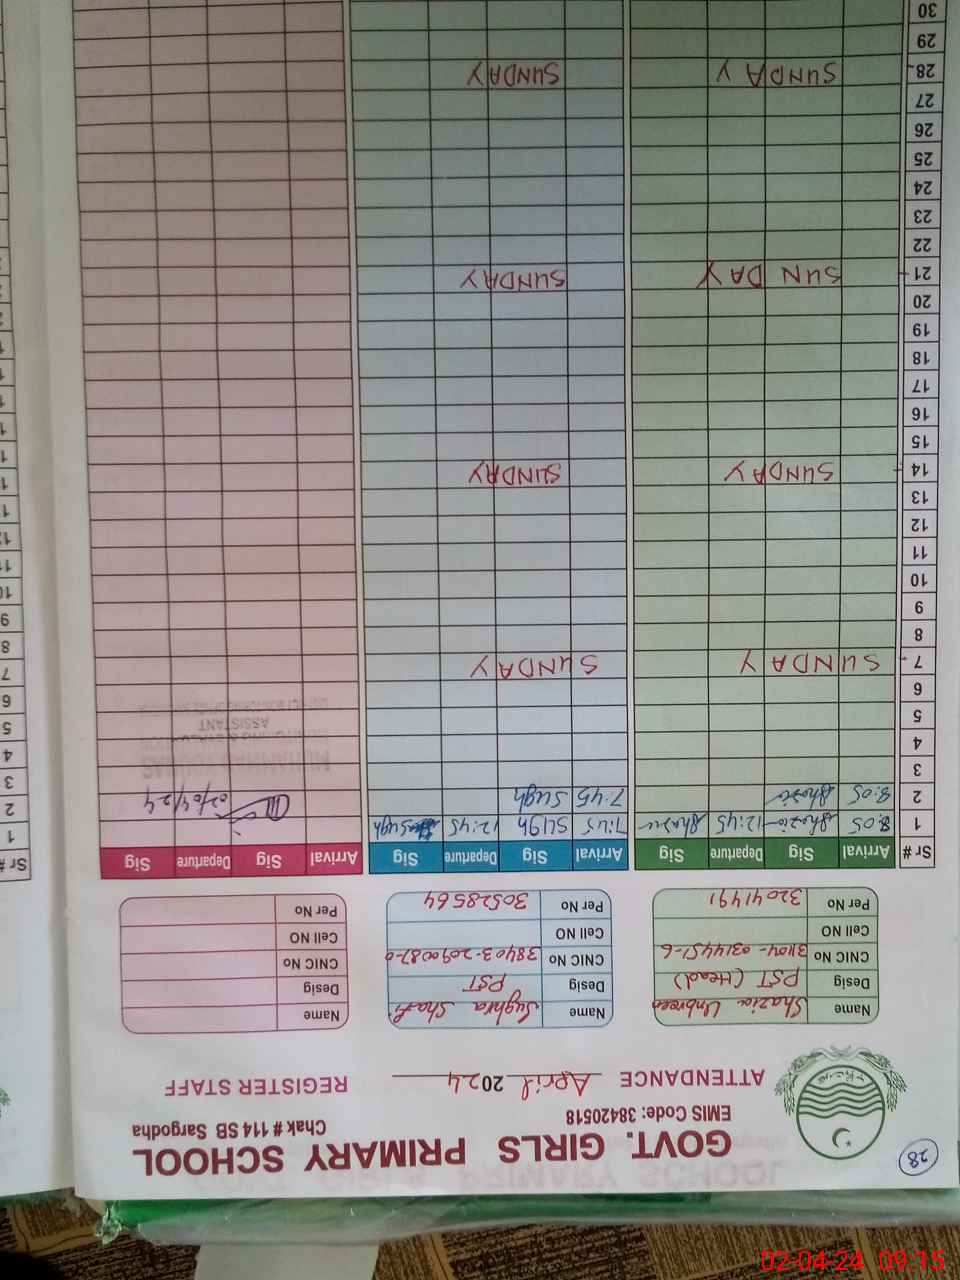 28
GOVT. GIRLS PRIMARY SCHOOL
EMIS Code: 38420518 Chak # 114 SB Sargodha
ATTENDANCE April 2024 REGISTER STAFF
Name Shazia Unbreen Name Sughra Shafi Name
Desig PST (Head) Desig PST Desig
CNIC No 31104-0314451-6 CNIC No 38403-2090087-0 CNIC No
Cell NO Cell NO Cell NO
Per No 32041491 Per No 30528564 Per No
Sr # Arrival Sig Departure Sig Arrival Sig Departure Sig Arrival Sig Departure Sig
1 8:05 Shazia 12:45 Shazia 7:45 Sugh 12:45 Sugh
2 8:05 Shazia 7:45 Sugh 02/04/24
3
4
ASSISTANT
5
6
7 SUNDAY SUNDAY
8
9
10
11
12
13
14 SUNDAY SUNDAY
15
16
17
18
19
20
21 SUNDAY SUNDAY
22
23
24
25
26
27
28 SUNDAY SUNDAY
29
30
Sr #
1
2
3
4
5
6
7
8
9
10
02-04-24 09:15